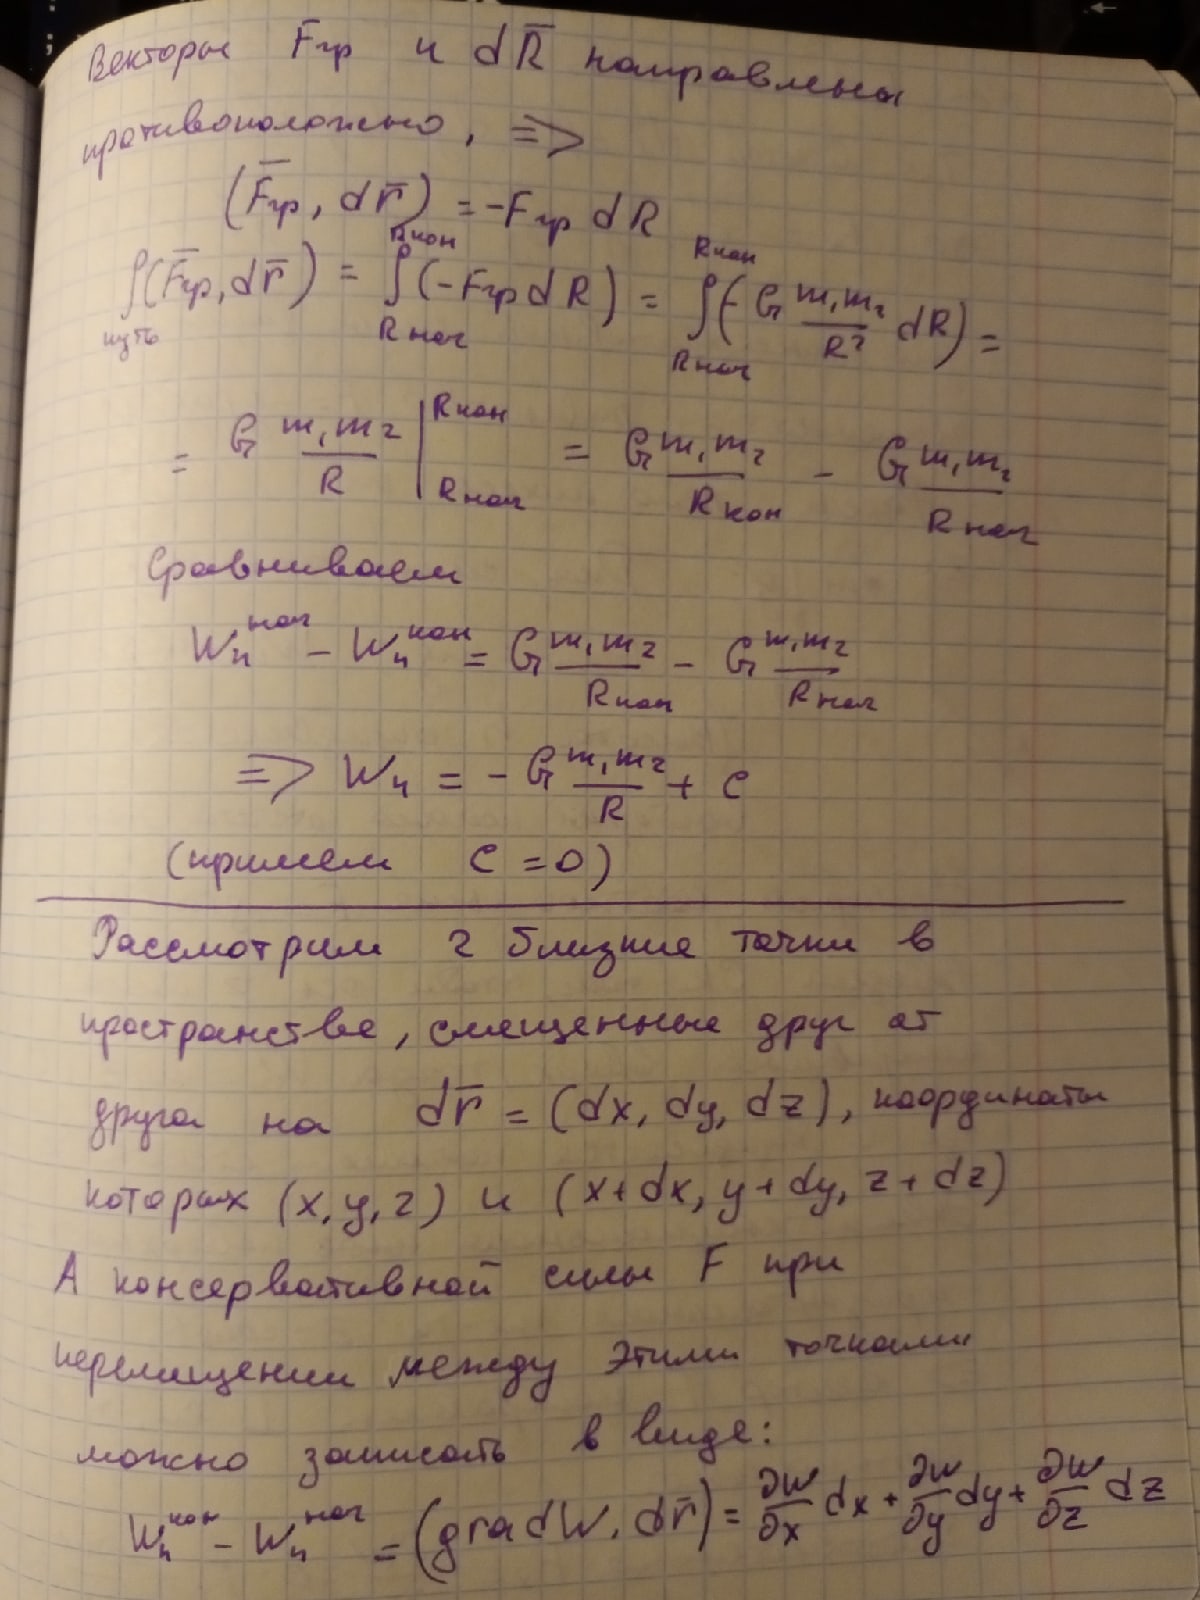 Векторы Fгр и dR̅ направлены
противоположно, =>
(F̅гр, dr̅) = -Fгр dR
∫(F̅гр, dr̅) = ∫(-Fгр dR) = ∫(- G m₁m₂/R² dR) =
путь Rнач Rкон Rнач Rкон
= G m₁m₂/R | Rкон Rнач = G m₁m₂/Rкон - G m₁m₂/Rнач
Сравниваем
Wп^нач - Wп^кон = G m₁m₂/Rкон - G m₁m₂/Rнач
=> Wп = - G m₁m₂/R + C
(примем C = 0)
Рассмотрим 2 близкие точки в
пространстве, смещенные друг от
друга на dr̅ = (dx, dy, dz), координаты
которых (x, y, z) и (x+dx, y+dy, z+dz)
A консервативной силы F при
перемещении между этими точками
можно записать в виде:
Wп^кон - Wп^нач = (gradW, dr̅) = ∂W/∂x dx + ∂W/∂y dy + ∂W/∂z dz